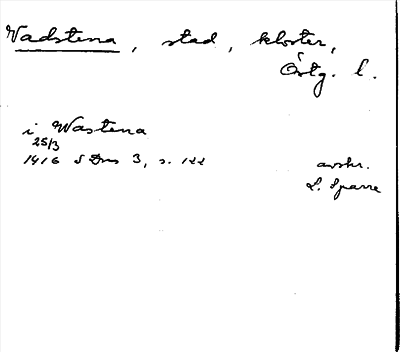 Vadstena, stad, kloster,
Östg. l.
i Wastena
25/3
1416 S Dns 3, s. 122
avskr.
L. Sparre